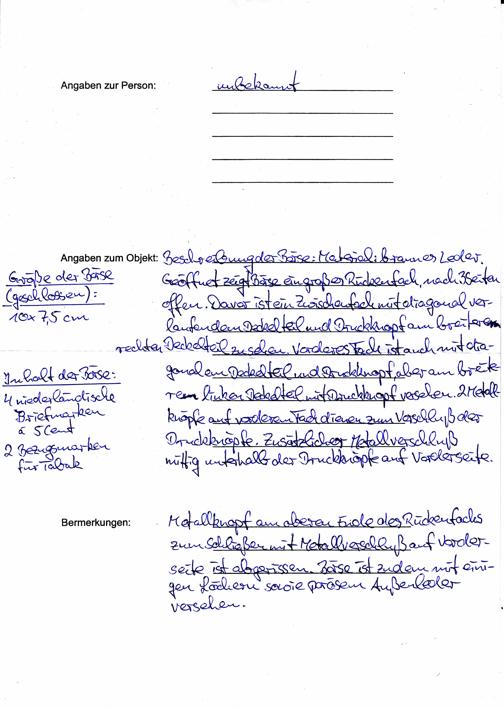 Angaben zur Person: unbekannt
Angaben zum Objekt: Beschreibung der Börse: Material: braunes Leder.
Geöffnet zeigt Börse ein großes Rückenfach, nach 3 Seiten
offen. Davor ist ein Zwischenfach mit diagonal ver-
laufendem Deckelteil und Druckknopf am breiteren
rechten Deckelteil zu sehen. Vorderes Fach ist auch mit dia-
gonalem Deckelteil und Druckknopf, aber am breite-
ren linken Deckelteil mit Druckknopf versehen. 2 Metall-
knöpfe auf vorderem Fach dienen zum Verschluß der
Druckknöpfe. Zusätzlicher Metallverschluß
mittig unterhalb der Druckknöpfe auf Vorderseite.
Größe der Börse
(geschlossen):
10x7,5 cm
Inhalt der Börse:
4 niederländische
Briefmarken
à 5 Cent
2 Bezugsmarken
für Tabak
Bermerkungen: Metallknopf am oberen Ende des Rückenfachs
zum Schließen mit Metallverschluß auf Vorder-
seite ist abgerissen. Börse ist zudem mit eini-
gen Löchern sowie porösem Außenleder
versehen.